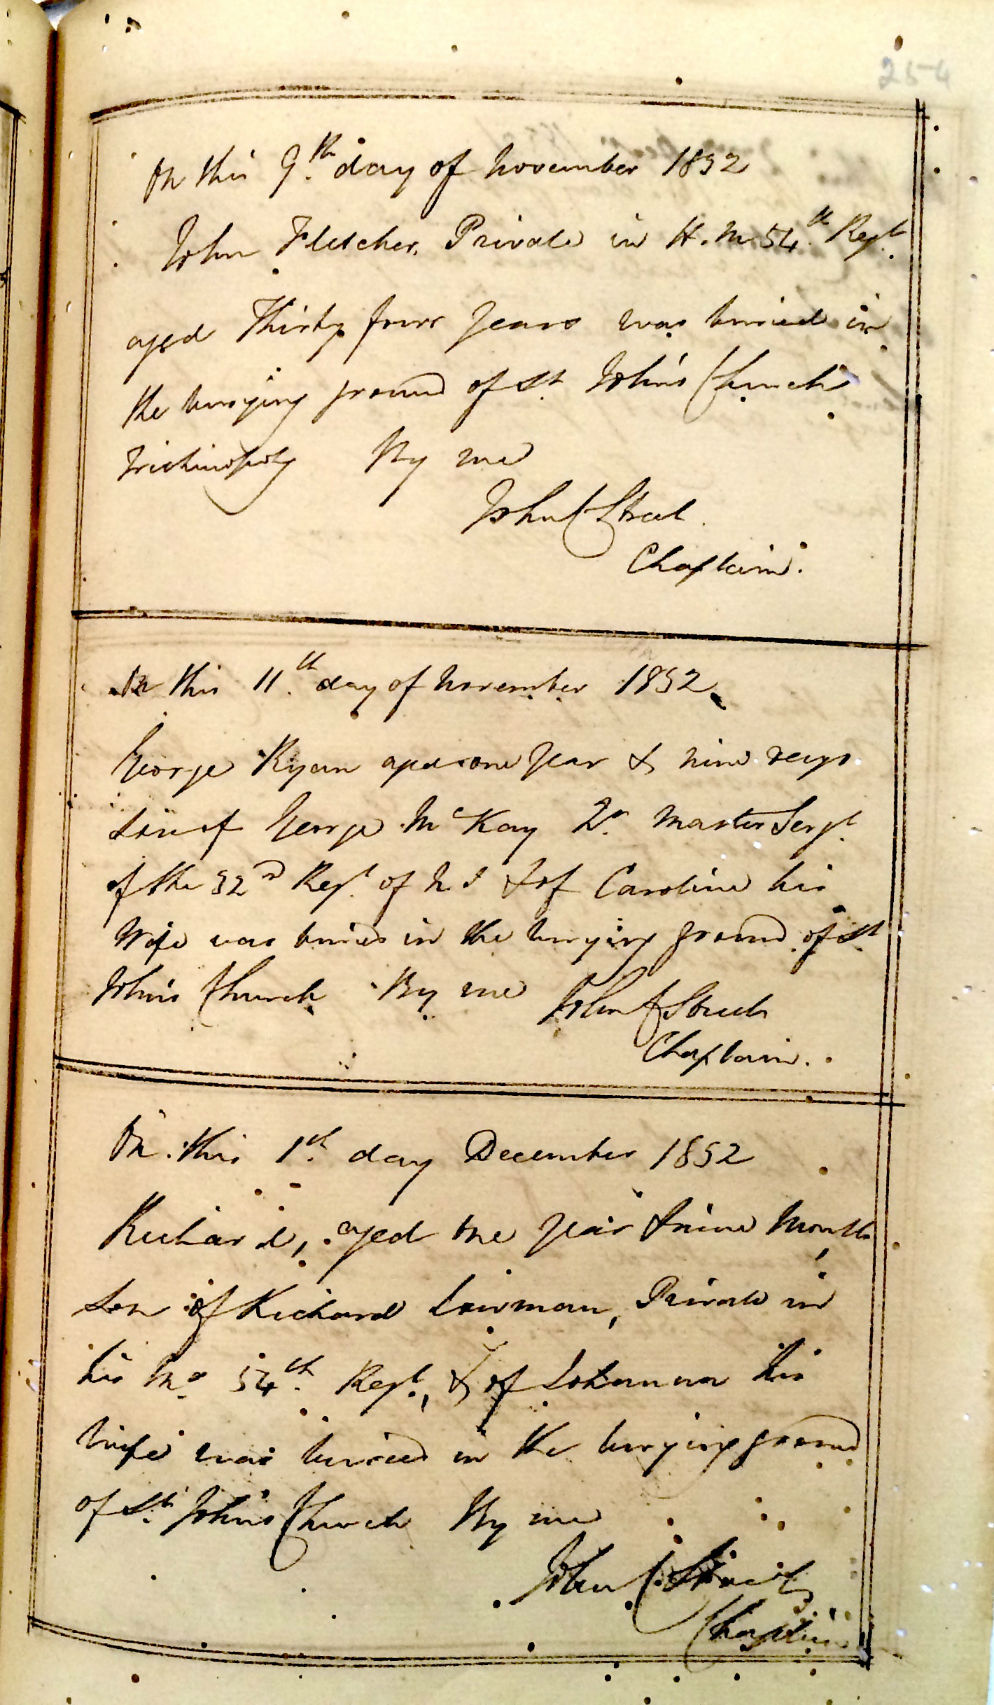 254
On this 9th day of November 1832
John Fletcher, Private in H. M. 54th Regt
aged Thirty four years was buried in
the burying ground of St John's Church
Trichinopoly By me
John C Street
Chaplain.
On this 11th day of November 1832
George Ryan aged one year & nine days
son of George McKay Qr Master Sergt
of the 32nd Regt of N I & of Caroline his
Wife was buried in the burying ground of St
John's Church By me John C Street
Chaplain.
On this 1th day December 1832
Richard, aged one year & nine Months
son of Richard Lowman, Private in
his Ms 54th Regt, & of Johanna his
wife was buried in the burying ground
of St John's Church By me
John C Street
Chaplain